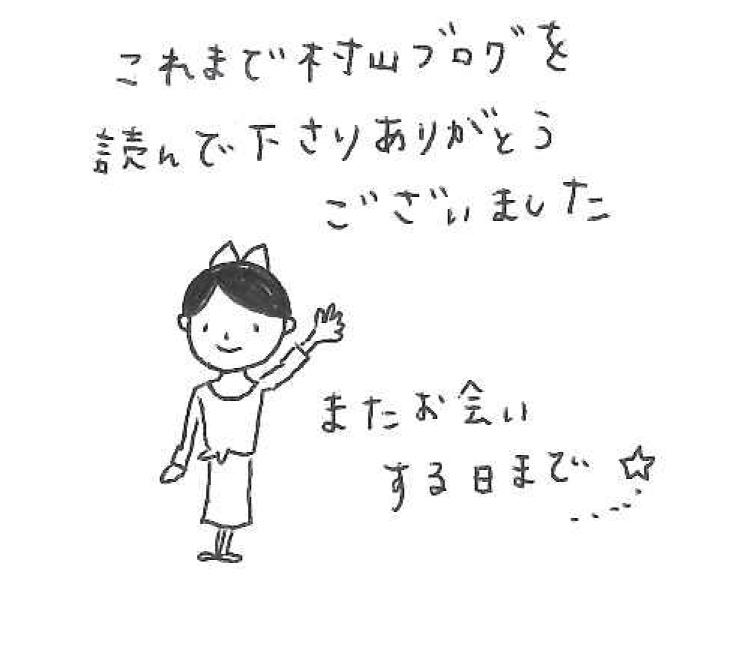 これまで村山ブログを
読んで下さりありがとう
ございました
またお会い
する日まで☆